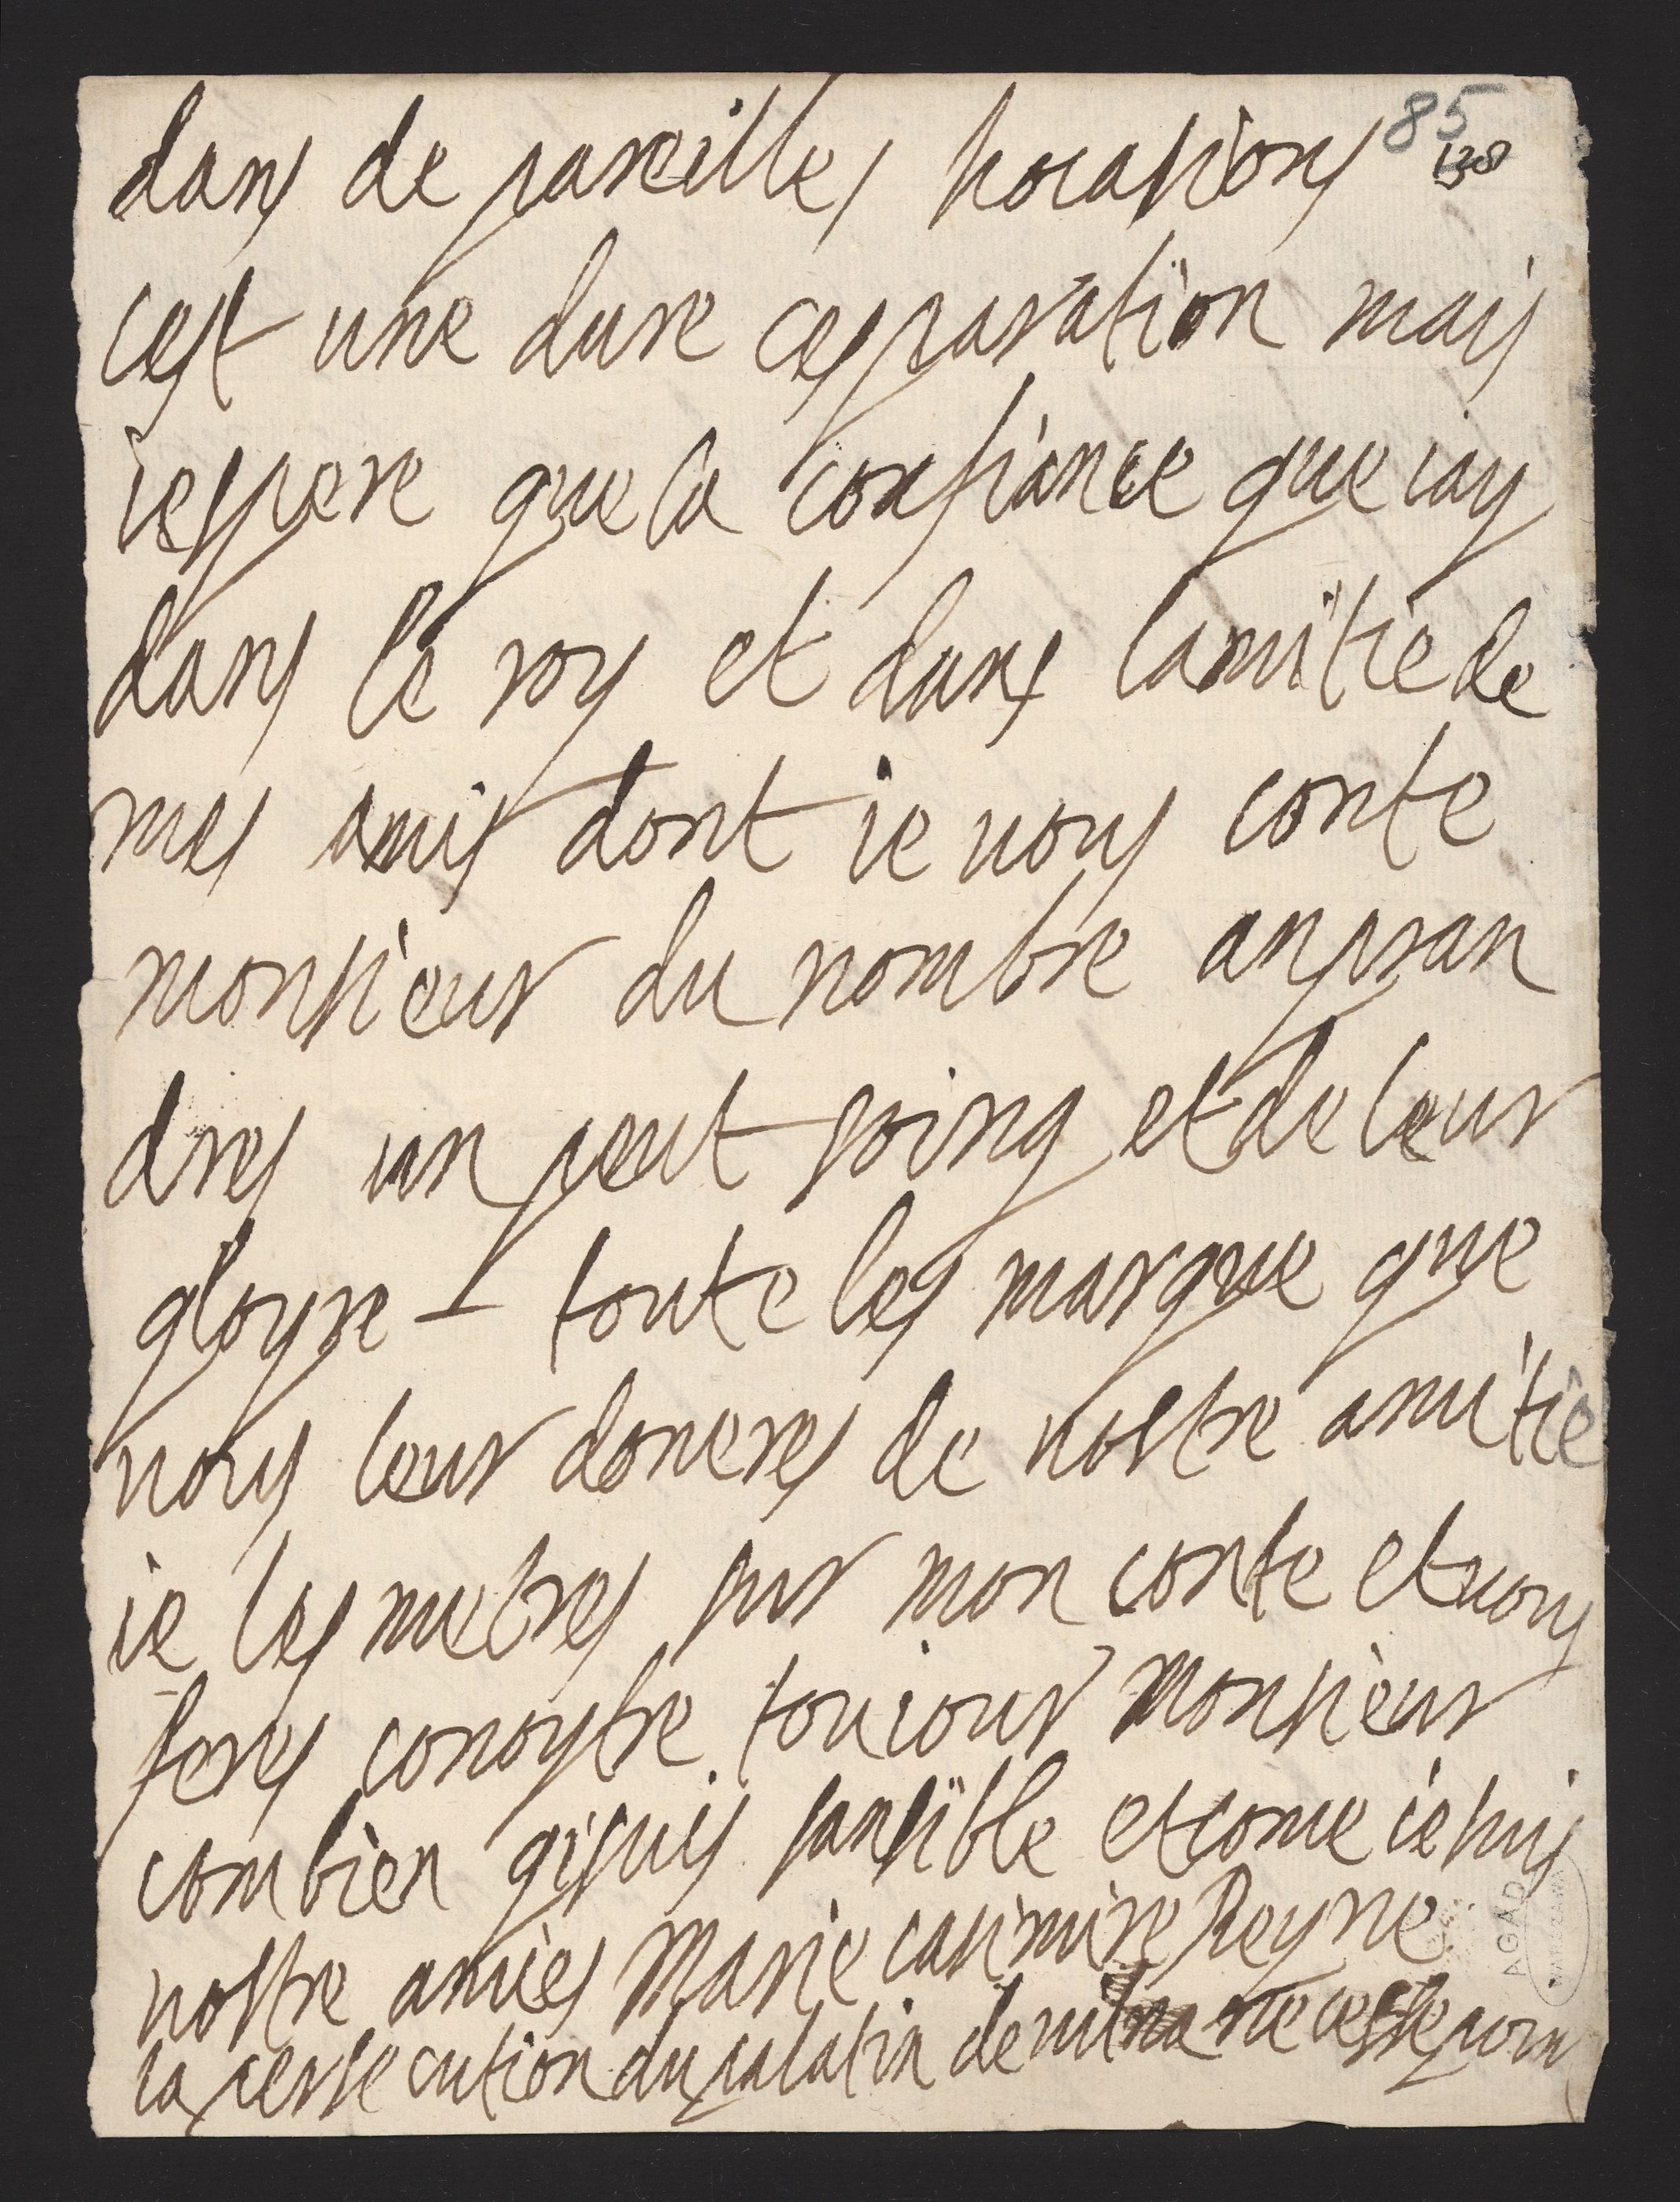 85
138
dans de pareilles hocasions
cest une dure cesparation mais
iespere que la confiance que iay
dans le roy et dans lamitie de
mes amis dont ie vous conte
monsieur du nombre anpran
dres un peut soing et de leur
gloyre - toute les marque que
vous leur doneres de vostre amitie
ie les metres sur mon conte et vous
feres conoytre toujour monsieur
combien gisuis sansible et come ie suis
vostre amies Marie casimire Reyne
la persecution du palatin de vilna ne cesse poin
AGAD